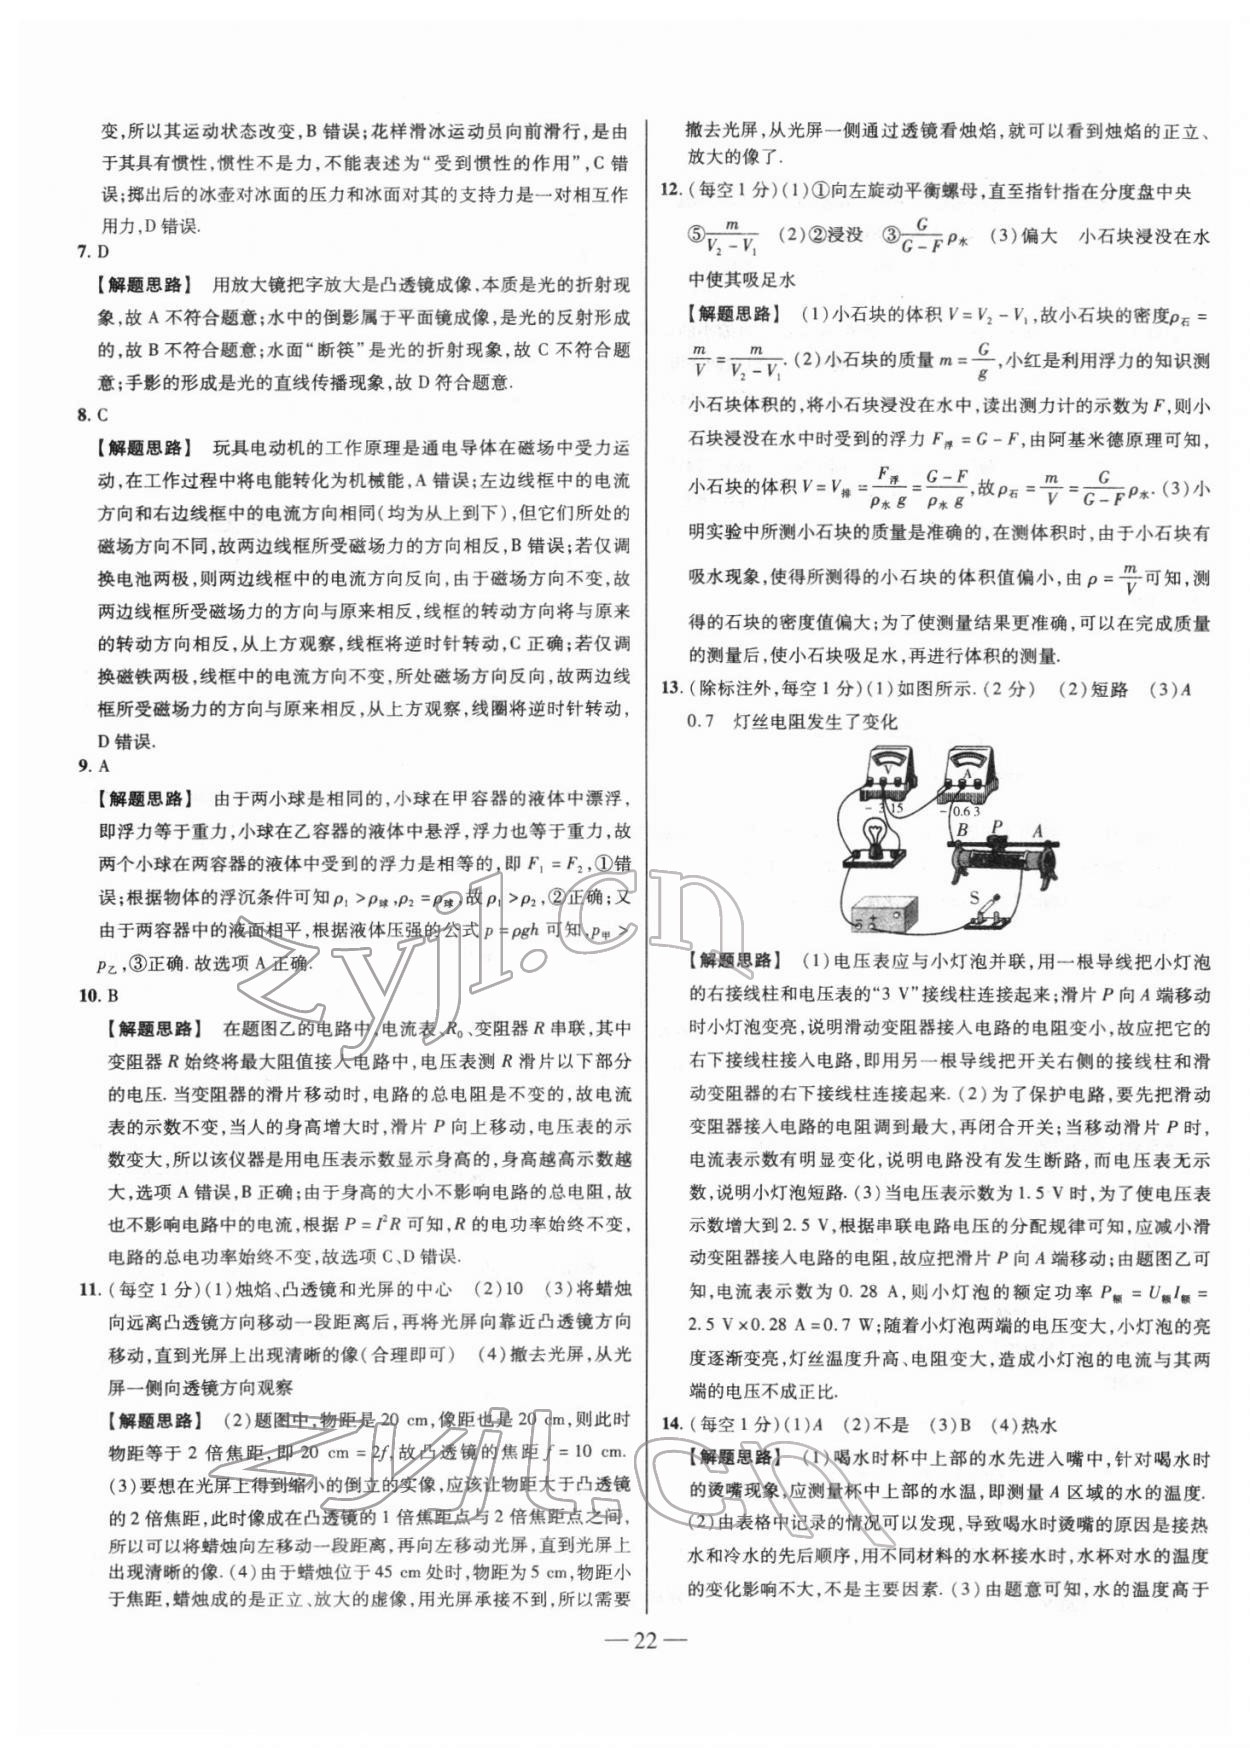 变,所以其运动状态改变,B 错误;花样滑冰运动员向前滑行,是由
于其具有惯性,惯性不是力,不能表述为“受到惯性的作用”,C 错
误;掷出后的冰壶对冰面的压力和冰面对其的支持力是一对相互作
用力,D 错误.
7. D
【解题思路】 用放大镜把字放大是凸透镜成像,本质是光的折射现
象,故 A 不符合题意;水中的倒影属于平面镜成像,是光的反射形成
的,故 B 不符合题意;水面“断筷”是光的折射现象,故 C 不符合题
意;手影的形成是光的直线传播现象,故 D 符合题意.
8. C
【解题思路】 玩具电动机的工作原理是通电导体在磁场中受力运
动,在工作过程中将电能转化为机械能,A 错误;左边线框中的电流
方向和右边线框中的电流方向相同(均为从上到下),但它们所处的
磁场方向不同,故两边线框所受磁场力的方向相反,B 错误;若仅调
换电池两极,则两边线框中的电流方向反向,由于磁场方向不变,故
两边线框所受磁场力的方向与原来相反,线框的转动方向将与原来
的转动方向相反,从上方观察,线框将逆时针转动,C 正确;若仅调
换磁铁两极,线框中的电流方向不变,所处磁场方向反向,故两边线
框所受磁场力的方向与原来相反,从上方观察,线圈将逆时针转动,
D 错误.
9. A
【解题思路】 由于两小球是相同的,小球在甲容器的液体中漂浮,
即浮力等于重力,小球在乙容器的液体中悬浮,浮力也等于重力,故
两个小球在两容器的液体中受到的浮力是相等的,即 F₁ = F₂,①错
误;根据物体的浮沉条件可知 ρ₁ >ρ球,ρ₂ =ρ球,故 ρ₁ >ρ₂,②正确;又
由于两容器中的液面相平,根据液体压强的公式 p = ρgh 可知,p甲 >
p乙,③正确.故选项 A 正确.
10. B
【解题思路】 在题图乙的电路中,电流表、R₀、变阻器 R 串联,其中
变阻器 R 始终将最大阻值接入电路中,电压表测 R 滑片以下部分
的电压.当变阻器的滑片移动时,电路的总电阻是不变的,故电流
表的示数不变,当人的身高增大时,滑片 P 向上移动,电压表的示
数变大,所以该仪器是用电压表示数显示身高的,身高越高示数越
大,选项 A 错误,B 正确;由于身高的大小不影响电路的总电阻,故
也不影响电路中的电流,根据 P = I²R 可知,R 的电功率始终不变,
电路的总电功率始终不变,故选项 C、D 错误.
11. (每空 1 分)(1)烛焰、凸透镜和光屏的中心 (2)10 (3)将蜡烛
向远离凸透镜方向移动一段距离后,再将光屏向靠近凸透镜方向
移动,直到光屏上出现清晰的像(合理即可) (4)撤去光屏,从光
屏一侧向透镜方向观察
【解题思路】 (2)题图中,物距是 20 cm,像距也是 20 cm,则此时
物距等于 2 倍焦距,即 20 cm = 2f,故凸透镜的焦距 f = 10 cm.
(3)要想在光屏上得到缩小的倒立的实像,应该让物距大于凸透镜
的 2 倍焦距,此时像成在凸透镜的 1 倍焦距点与 2 倍焦距点之间,
所以可以将蜡烛向左移动一段距离,再向左移动光屏,直到光屏上
出现清晰的像.(4)由于蜡烛位于 45 cm 处时,物距为 5 cm,物距小
于焦距,蜡烛成的是正立、放大的虚像,用光屏承接不到,所以需要
撤去光屏,从光屏一侧通过透镜看烛焰,就可以看到烛焰的正立、
放大的像了.
12. (每空 1 分)(1)①向左旋动平衡螺母,直至指针指在分度盘中央
⑤m/(V₂ − V₁) (2)②浸没 ③G/(G − F)ρ水 (3)偏大 小石块浸没在水
中使其吸足水
【解题思路】 (1)小石块的体积 V = V₂ − V₁,故小石块的密度ρ石 =
m/V = m/(V₂ − V₁).(2)小石块的质量 m = G/g,小红是利用浮力的知识测
小石块体积的,将小石块浸没在水中,读出测力计的示数为 F,则小
石块浸没在水中时受到的浮力 F浮 = G − F,由阿基米德原理可知,
小石块的体积 V = V排 = F浮/(ρ水 g) = (G − F)/(ρ水 g),故 ρ石 = m/V = G/(G − F)ρ水.(3)小
明实验中所测小石块的质量是准确的,在测体积时,由于小石块有
吸水现象,使得所测得的小石块的体积值偏小,由 ρ = m/V可知,测
得的石块的密度值偏大;为了使测量结果更准确,可以在完成质量
的测量后,使小石块吸足水,再进行体积的测量.
13. (除标注外,每空 1 分)(1)如图所示.(2 分) (2)短路 (3)A
0.7 灯丝电阻发生了变化
V A
− 3 15 − 0.6 3
B P A
S
− +
【解题思路】 (1)电压表应与小灯泡并联,用一根导线把小灯泡
的右接线柱和电压表的“3 V”接线柱连接起来;滑片 P 向 A 端移动
时小灯泡变亮,说明滑动变阻器接入电路的电阻变小,故应把它的
右下接线柱接入电路,即用另一根导线把开关右侧的接线柱和滑
动变阻器的右下接线柱连接起来.(2)为了保护电路,要先把滑动
变阻器接入电路的电阻调到最大,再闭合开关;当移动滑片 P 时,
电流表示数有明显变化,说明电路没有发生断路,而电压表无示
数,说明小灯泡短路.(3)当电压表示数为 1.5 V 时,为了使电压表
示数增大到 2.5 V,根据串联电路电压的分配规律可知,应减小滑
动变阻器接入电路的电阻,故应把滑片 P 向 A 端移动;由题图乙可
知,电流表示数为 0.28 A,则小灯泡的额定功率 P额 = U额I额 =
2.5 V×0.28 A=0.7 W;随着小灯泡两端的电压变大,小灯泡的亮
度逐渐变亮,灯丝温度升高、电阻变大,造成小灯泡的电流与其两
端的电压不成正比.
14. (每空 1 分)(1)A (2)不是 (3)B (4)热水
【解题思路】 (1)喝水时杯中上部的水先进入嘴中,针对喝水时
的烫嘴现象,应测量杯中上部的水温,即测量 A 区域的水的温度.
(2)由表格中记录的情况可以发现,导致喝水时烫嘴的原因是接热
水和冷水的先后顺序,用不同材料的水杯接水时,水杯对水的温度
的变化影响不大,不是主要因素.(3)由题意可知,水的温度高于
— 22 —
zyjl.cn
zyjl.cn